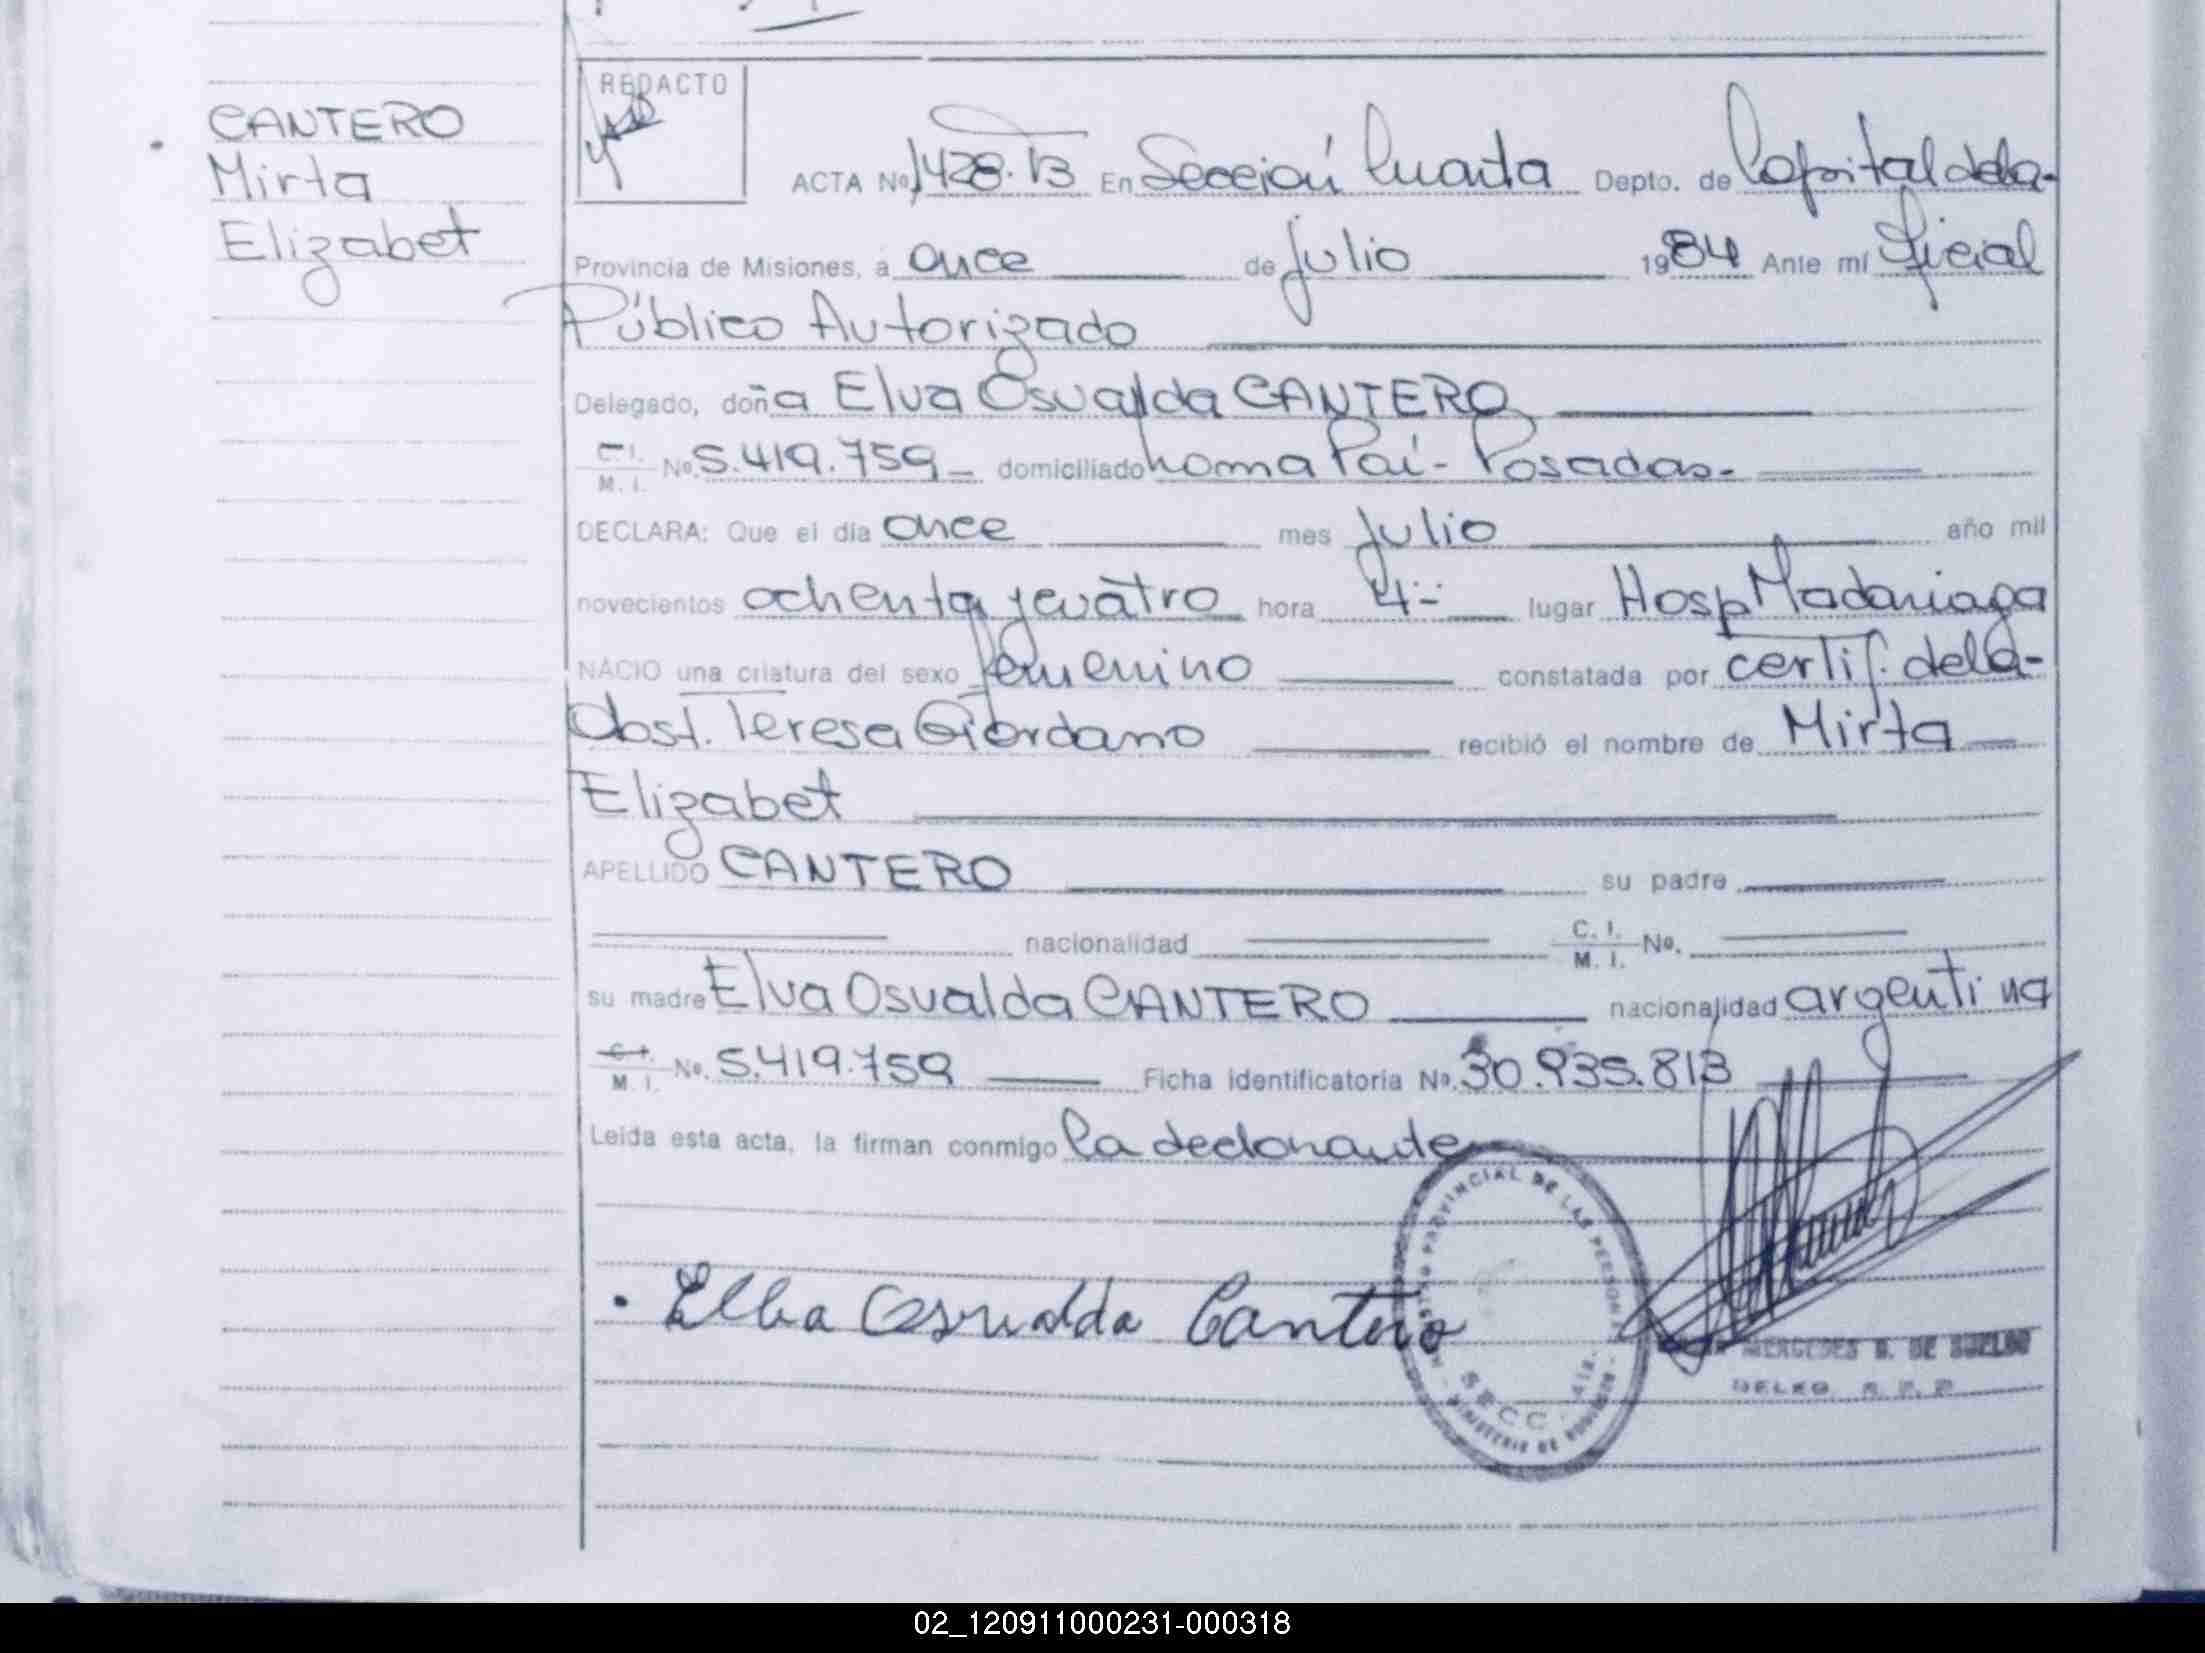 CANTERO
Mirta
Elizabet
REDACTO
ACTA Nº 1428.13 En Sección Cuarta Depto. de Capital de la-
Provincia de Misiones, a once de Julio 1984 Ante mí Oficial
Público Autorizado
Delegado, doña Elva Osvalda CANTERO
C.I. M.I. Nº 5.419.759 domiciliado Loma Paí - Posadas.
DECLARA: Que el día once mes Julio año mil
novecientos ochenta y cuatro hora 4- lugar Hosp Madariaga
NACIO una criatura del sexo femenino constatada por certif. de la-
Obst. Teresa Giordano recibió el nombre de Mirta
Elizabet
APELLIDO CANTERO su padre
nacionalidad C.I. M.I. Nº.
su madre Elva Osvalda CANTERO nacionalidad argentina
C.I. M.I. Nº. 5.419.759 Ficha identificatoria Nº. 30.935.813
Leída esta acta, la firman conmigo la declarante
PROVINCIAL DE LAS PERSONAS
SECC. 4ta.
MINISTERIO DE GOBIERNO
Elba Osvalda Cantero
MERCEDES B. DE SUELDO
DELEG. R. P. P.
02_120911000231-000318